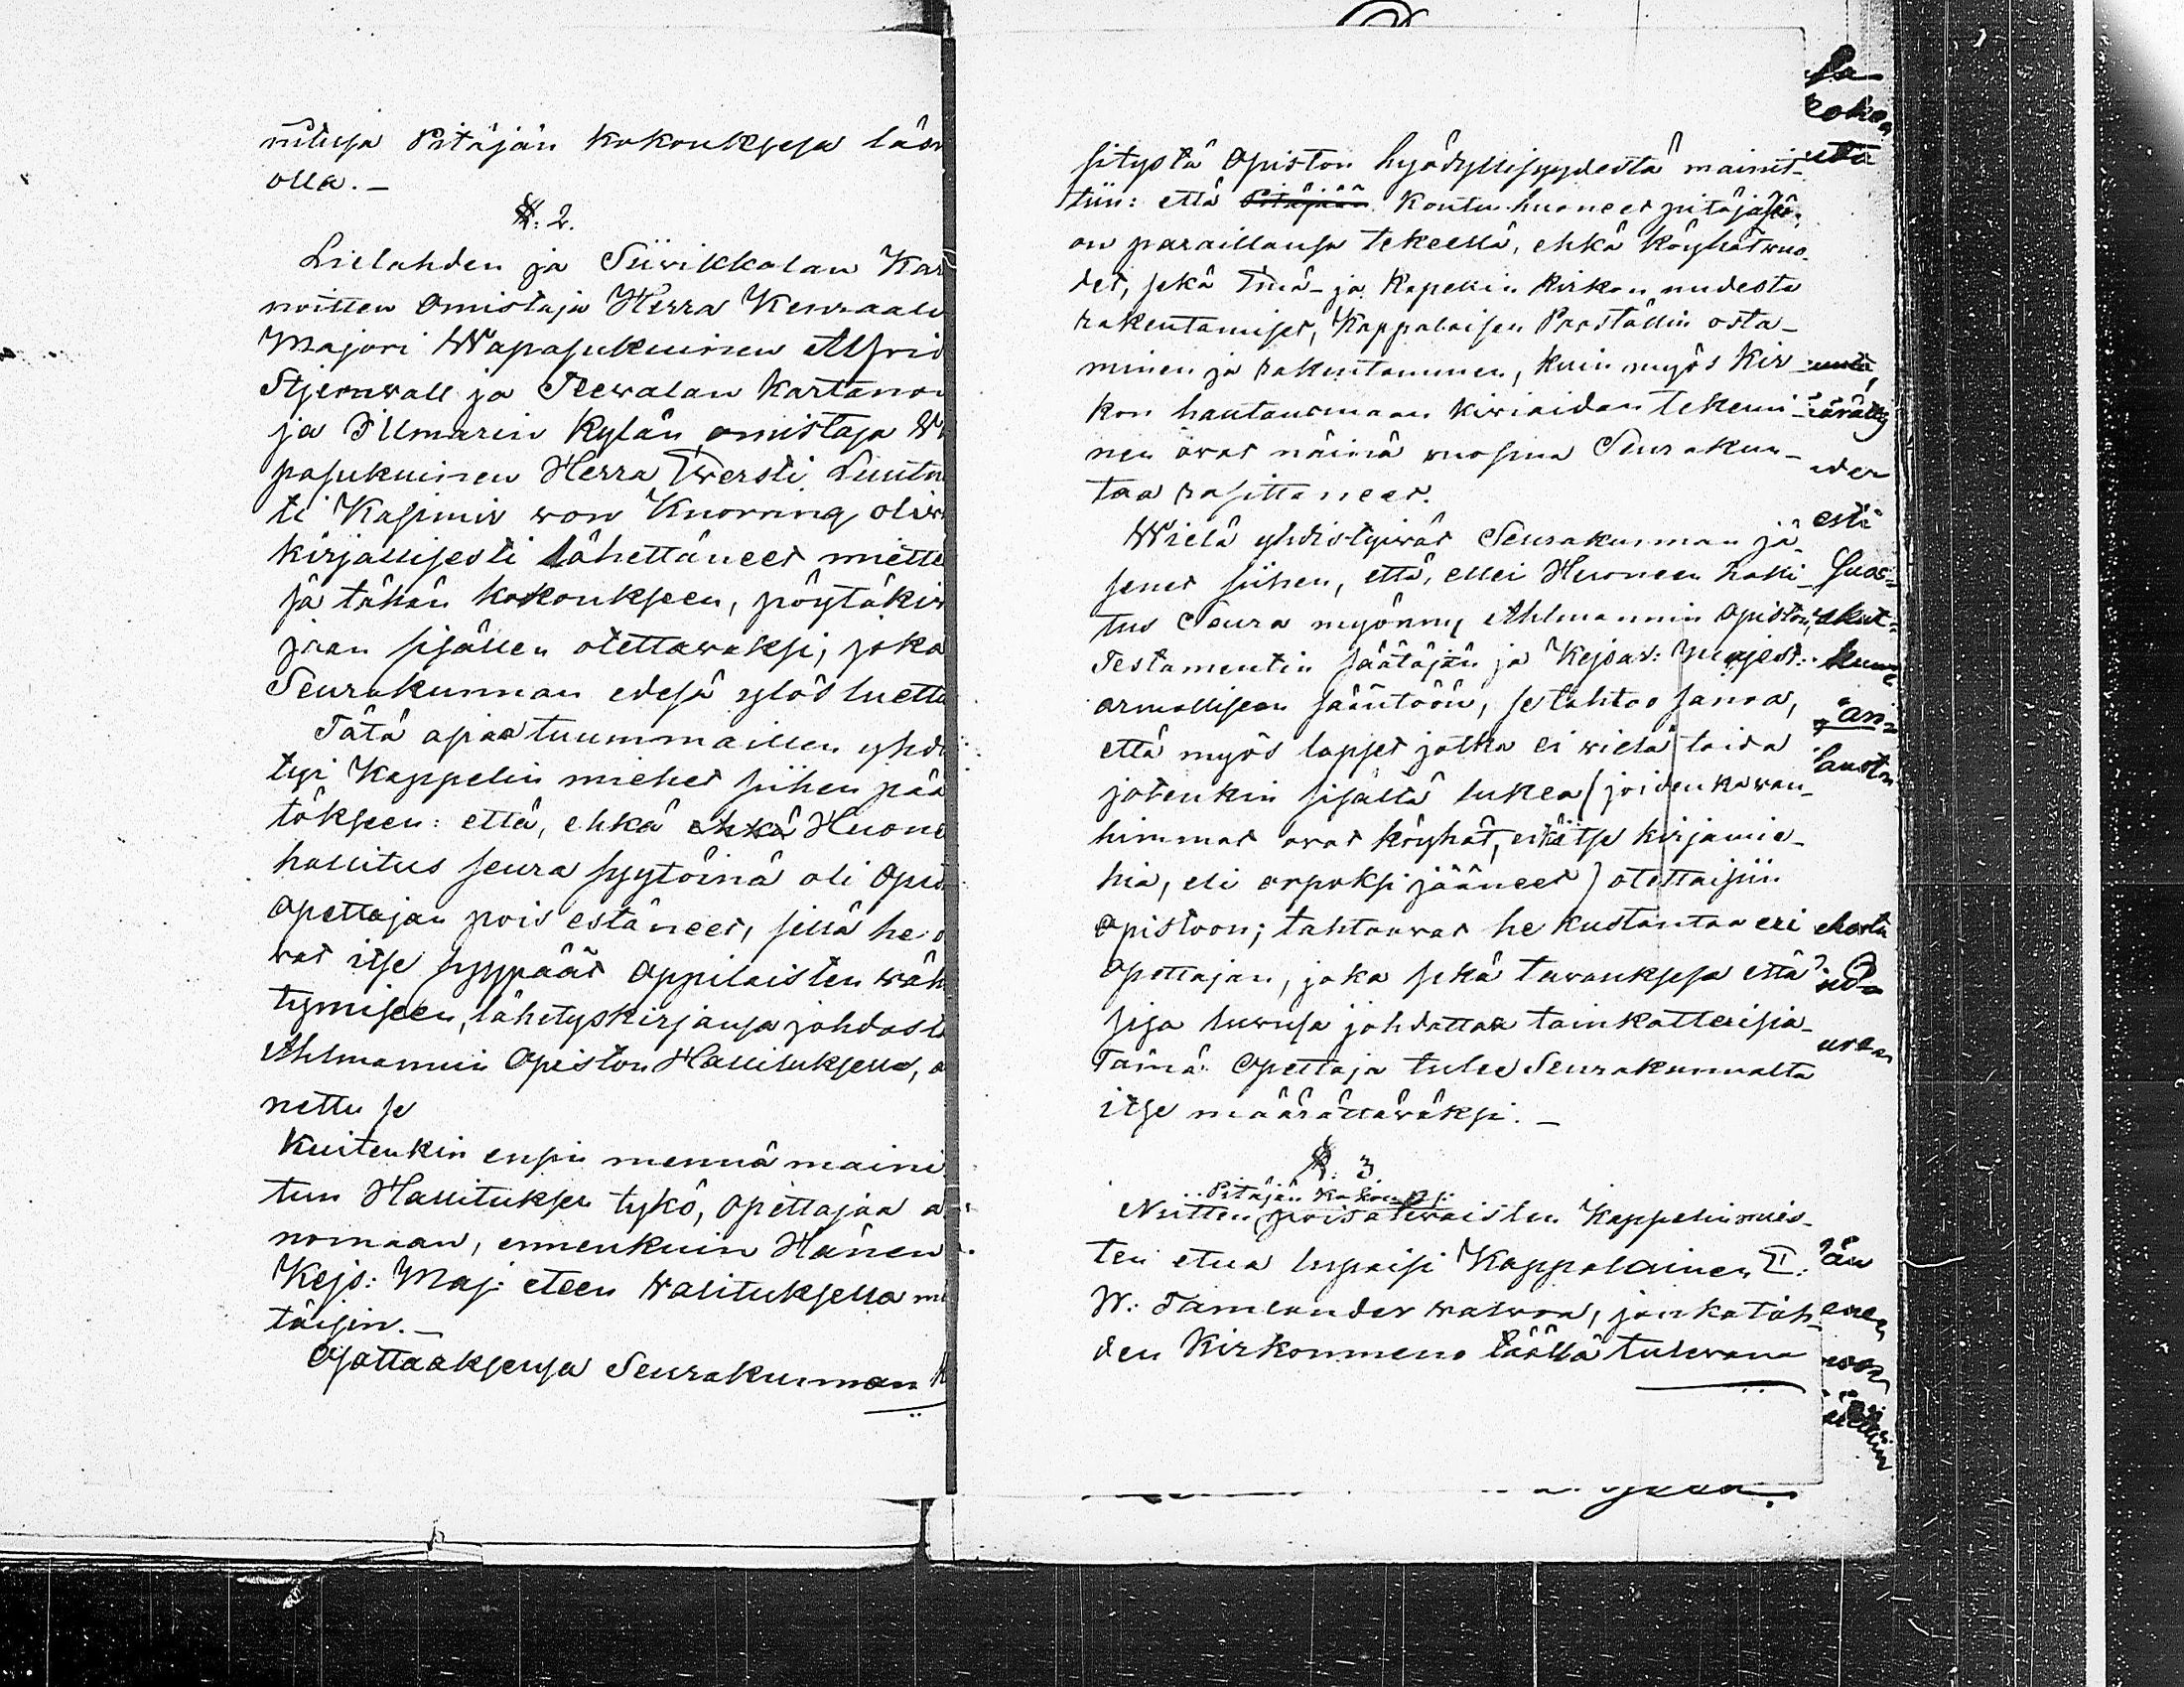 nituja Pitäjän kokoukseja läsn
olla. –
§. 2.
Lielahden ja Siivikkalan Kar
noitten omistaja Herra Kenraali
Majori Wapasukuinen Alfrid
Stjernvall ja Teewalan Kartanon
ja Ilmarin Kylän omistaja W
pasukuinen Herra Ewersti Luutn
ti Kasimir von Knorring oliv
kirjallisesti lähettäneet miette
jä tähän kokoukseen, pöytäkir
jaan sisällen otettavaksi, joka
Seurakunnan edesä ylös luettu
Tätä asiaa tuummaillen yhdi
tyi Kappelin miehet siihen pää
tökseen: että, ehkä ehkä Huone
hallitus seura syytöinä oli Opis
opettajan pois estäneet, sillä he o
vat itse syypäät oppilaisten wäh
tymiseen, lähetyskirjansa johdost
Ahlmannin Opiston Hallitukselle, a
nettu se
Kuitenkin ensin mennä maini
tun Hallituksen tykö, opettajaa a
nomaan, ennenkuin Hänen
Kejs: Maj: eteen walituksella me
täisin. –
Ojattaaksensa Seurakunnan k
sitystä Opiston hyödyllisyydestä mainit-
tiin: että Pitäjään Koulu huoneet pitäjäsä,
on paraillansa tekeellä, ehkä köyhät wuo-
det, sekä Emä- ja Kapellin Kirkon uudesta
rakentamiset, Kappalaisen Paaställin osta-
minen ja rakentaminen, kuin myös Kir-
kon hautausmaan kiviaidan tekemi-
nen ovat näinä wuosina Seurakun-
taa rasittaneet.
Wielä yhdistyivät Seurakunnan jä-
senet siihen, että, ellei Huoneen halli-
tus Seura myönny Ahlmannin Opiston
Testamentin säätäjän ja Kejsar: Majest:
armollisen sääntöön, se tahtoo sanoa,
että myös lapset jotka ei wielä taida
jotenkin sisältä lukea (joiden ka wan-
himmat ovat köyhät, eikä itse kirjamie-
hiä, eli orpoksi jääneet) otettaisiin
opistoon; tahtoovat he kustantaa eri
opettajan, joka sekä tavauksesa että
sisa luvusa johdattaa tainkaltaisia-
Tämä Opettaja tulee Seurakunnalta
itse määrättäväksi. –
§. 3.
Pitäjän Kokouksesta
Niitten poisolewaisten Kappelinmies-
ten etua lupaisi Kappalainen E:
W: Tamlander walvoa, jonka täh-
den Kirkonmeno täällä tulevana